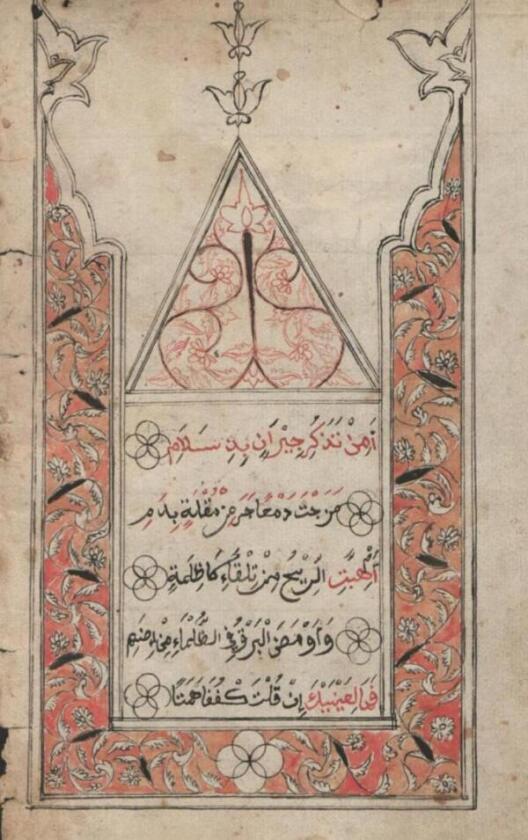 أَمِنْ تَذَكُّرِ جِيْرَانٍ بِذِيْ سَلَامٍ
مَزَجْتَ دَمْعًا جَرَى مِنْ مُقْلَةٍ بِدَمِ
أَمْ هَبَّتِ الرِّيْحُ مِنْ تِلْقَاءِ كَاظِمَةٍ
وَأَوْمَضَ الْبَرْقُ فِي الظُّلْمَاءِ مِنْ إِضَمِ
فَمَا لِعَيْنَيْكَ إِنْ قُلْتَ كْفُفَا هَمَتَا